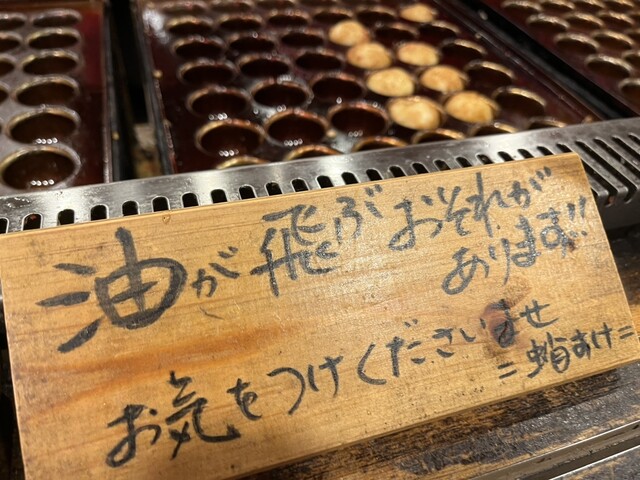 油が飛ぶおそれが
あります!!
お気をつけくださいませ
=蛸あけ=